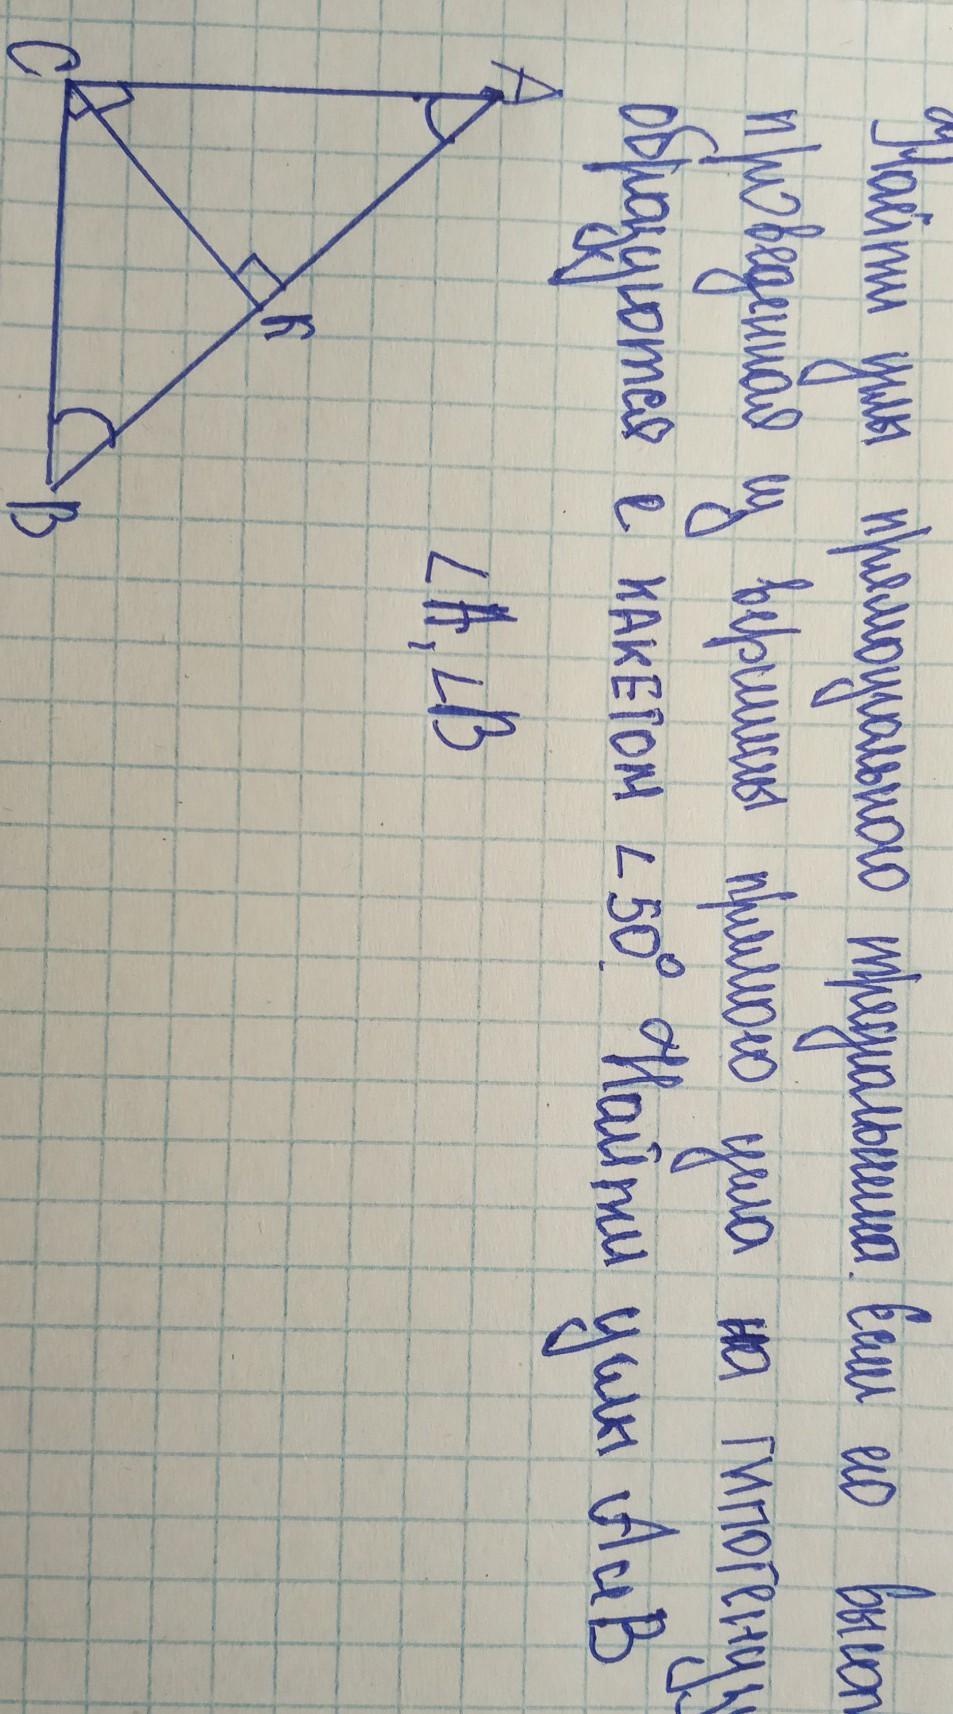 Найти углы прямоугольного треугольника. Если его высот
проведенная из вершины прямого угла на гипотенузу
образуются с катетом ∠50°. Найти углы А и В
∠А, ∠В
А
С
К
В